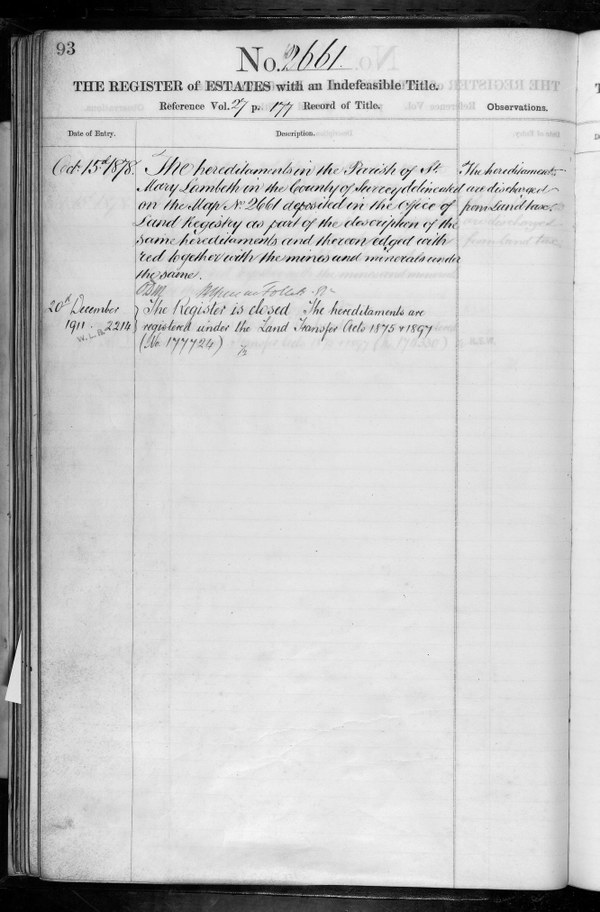 93
No. 2661.
THE REGISTER of ESTATES with an Indefeasible Title.
Reference Vol. 27 p. 177 Record of Title.
Observations.
Date of Entry.
Description.
Oct. 15th 1878.
The hereditaments in the Parish of St.
Mary Lambeth in the County of Surrey delineated
on the Map No. 2661 deposited in the Office of
Land Registry as part of the description of the
same hereditaments and thereon edged with
red together with the mines and minerals under
the same.
The hereditaments
are discharged
from Land tax.
20th December
1911. 2214
The Register is closed The hereditaments are
registered under the Land Transfer Acts 1875 & 1897
(No. 177724)